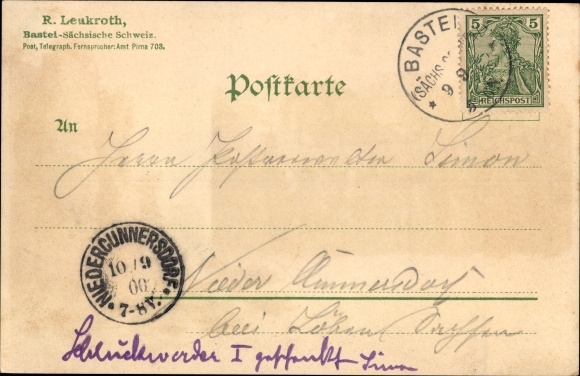 R. Leukroth,
Bastei-Sächsische Schweiz.
Post, Telegraph. Fernsprecher: Amt Pirna 708.
BASTEI
(SÄCHS.
* 9 9
5 5
REICHSPOST
Postkarte
An
Herrn Simon
NIEDERCUNNERSDORF
10/9
00
7-8V.
Nieder Cunnersdorf
bei Löbau Sachsen
I Simon